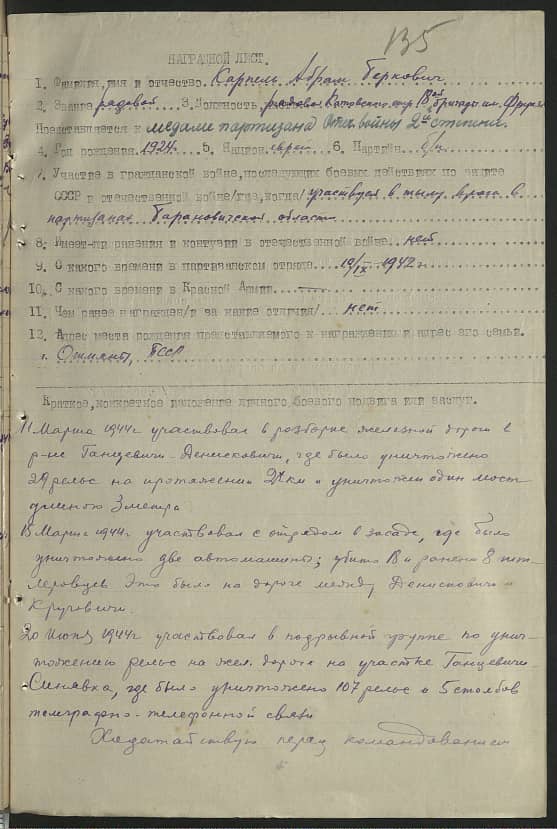 135
НАГРАДНОЙ ЛИСТ.
1. Фамилия, имя и отчество Карпель Абрам Беркович
2. Звание рядовой 3. Должность рядовой отр. 18ой бригады им. Фрунзе
Представляется к медали партизана Отеч. войны 2й степени.
4. Год рождения 1924 5. Национ. еврей 6. Партийн. б/п
7. Участие в гражданской войне, последующих боевых действиях по защите
СССР и отечественной войне/где, когда/ участвует в тылу врага в
партизанах Барановичской области
8. Имеет-ли ранения и контузии в отечественной войне нет
9. С какого времени в партизанском отряде 19/IX 1942 г
10. С какого времени в Красной Армии —
11. Чем ранее награжден/и за какие отличия/ нет
12. Адрес места рождения представляемого к награждению и адрес его семьи.
г. Ошмяны, БССР
Краткое, конкретное изложение личного боевого подвига или заслуг.
11 Марта 1944г участвовал в разборке железной дороги в
р-не Ганцевичи-Денисковичи, где было уничтожено
29 рельс на протяжении км и уничтожен один мост
длиною 3 метра
15 Марта 1944г. участвовал с отрядом в засаде, где было
уничтожено две автомашины; убито и ранено 8 гит-
леровцев Это было на дороге между Денисковичи и
Круговичи.
20 Июня 1944г участвовал в подрывной группе по унич-
тожению рельс на жел. дороге на участке Ганцевичи-
Синявка, где было уничтожено 107 рельс и 5 столбов
телеграфно-телефонной связи
Ходатайствую перед командованием